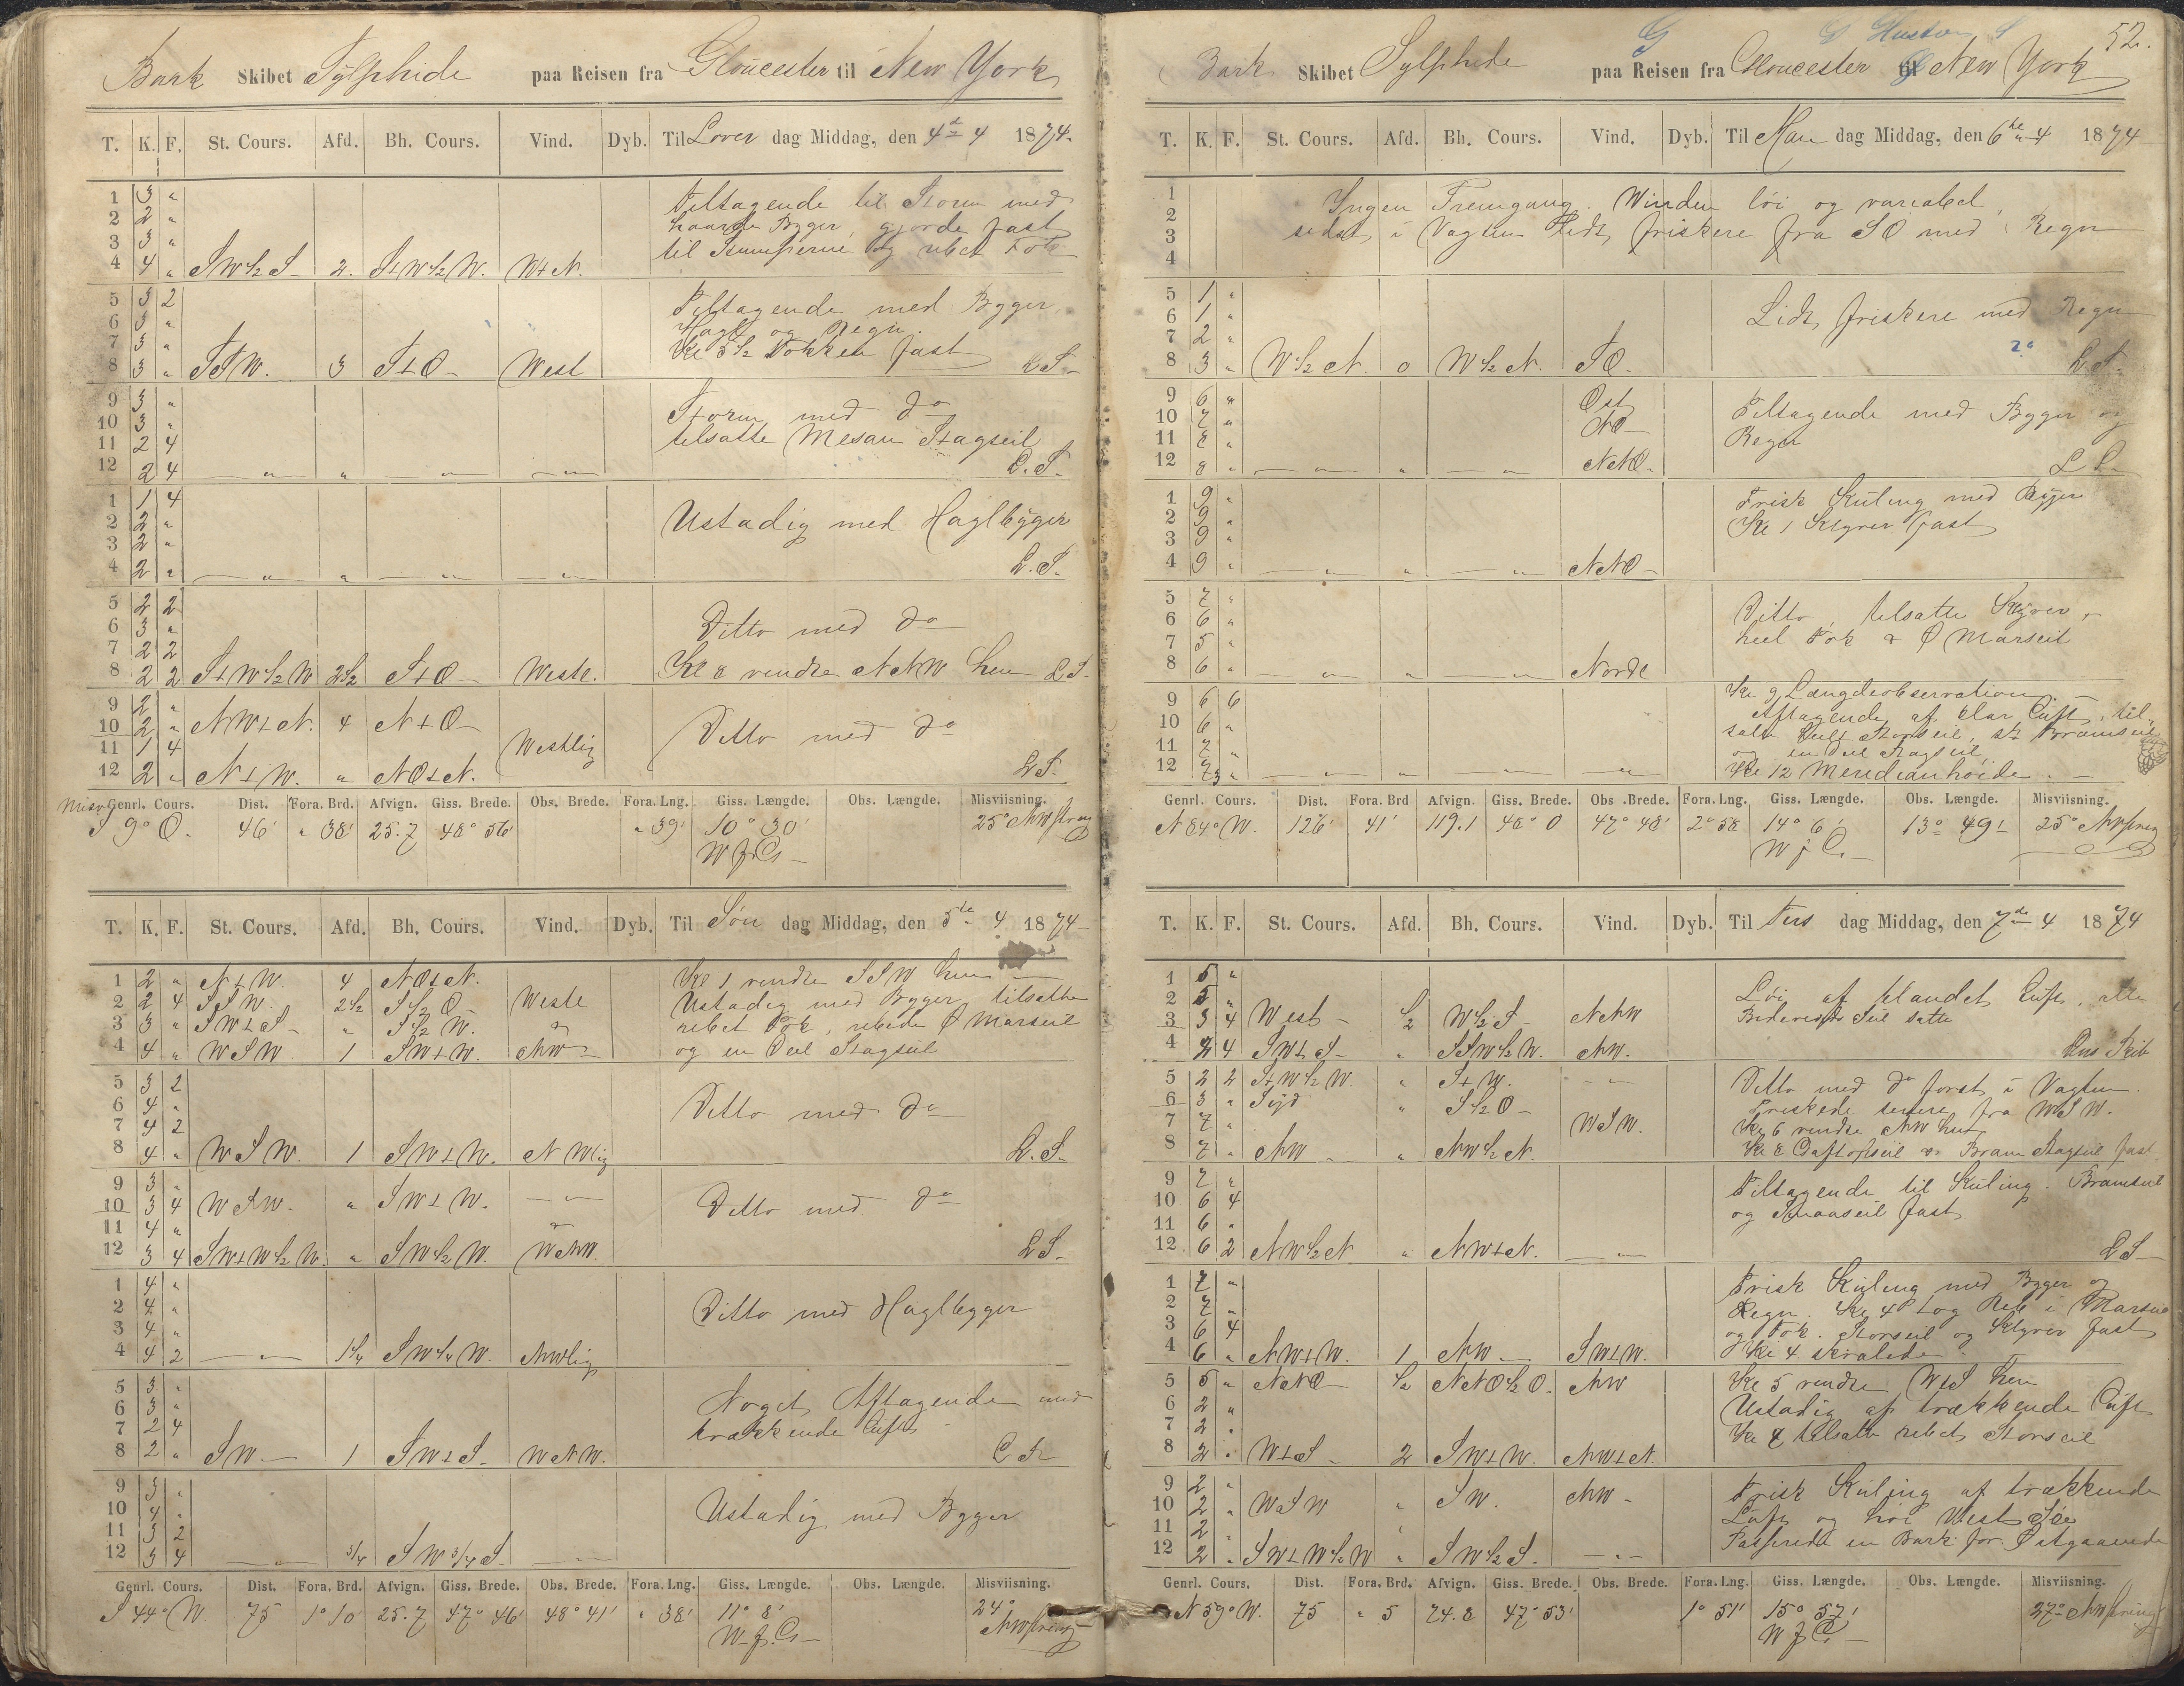 Bark Skibet Sylphide paa Reisen fra Gloucester til New York
T. K. F. St. Cours. Afd. Bh. Cours. Vind. Dyb. Til Löver dag Middag, den 4de 4 1874
1 3 "
2 2 "
3 3 "
4 4 " SW½S 2. S+W½W. W+N.
Tiltagende til Storm med
haarde Byger, gjorde fast
til Stumperne og rebet Fok
5 3 2
6 3 "
7 3 "
8 3 " SSW. 3 S+O West
Tiltagende med Byger
Hagl og Regn.
Kl 5½ Fokken fast
L S
9 3 "
10 3 "
11 2 4
12 2 4 — " — " — " — — " —
Storm med do
tilsatte Mesan Stagseil
L. S.
1 1 4
2 2 "
3 2 "
4 2 " — " — " — " — — " —
Ustadig med Haglbyger
L. S.
5 2 2
6 3 "
7 2 2
8 2 2 S+W½W 2½ S+O Westl.
Ditto med do
Kl 8 vendte NNW hen L S.
9 2 "
10 2 " NW+N. 4 N+O
11 1 4 Westlig
12 2 " N+W. " NO+N.
Ditto med do
L S.
Genrl. Cours. Dist. Fora. Brd. Afvign. Giss. Brede. Obs. Brede. Fora. Lng. Giss. Længde. Obs. Længde. Misviisning.
S 9° O. 46' " 38' 25.7 48° 56' " 39' 10° 30' 25° NW
T. K. F. St. Cours. Afd. Bh. Cours. Vind. Dyb. Til Søn dag Middag, den 5te 4 1874
1 2 " N+W. 4 NO+N.
2 2 4 SSW. 2½ S½O Westl
3 3 " SW+S " S½W. "
4 4 " WSW 1 SW+W. NW
Kl 1 vendte SSW hen
Ustadig med Byger, tilsatte
rebet Fok, rebede Ø Marseil
og en Deel Stagseil
5 3 2
6 4 "
7 4 2
8 4 " WSW. 1 SW+W. NWlig
Ditto med do
L. S.
9 3 "
10 3 4 WSW. " SW+W. — " —
11 4 "
12 3 4 SW+W½W. " SW½W. WNW.
Ditto med do
L S
1 4 "
2 4 "
3 4 "
4 4 2 — " — 1¼ SW¼W. NWlig
Ditto med Haglbyger
5 3 "
6 3 "
7 2 4
8 2 " SW 1 SW+S WNW.
Noget Aftagende med
trækkende Luft
9 3 "
10 4 "
11 3 2
12 3 4 — " — ¾ SW¾S. — " —
Ustadig med Byger
Genrl. Cours. Dist. Fora. Brd. Afvign. Giss. Brede. Obs. Brede. Fora. Lng. Giss. Længde. Obs. Længde. Misviisning.
S 44° W. 75 1° 10' 25.7 47° 46' 48° 41' " 38' 11° 8' 24°
52.
Bark Skibet Sylphide paa Reisen fra Gloucester til New York
T. K. F. St. Cours. Afd. Bh. Cours. Vind. Dyb. Til Man dag Middag, den 6te 4 1874
1
2
3
4
Ingen Fremgang. Vinden løi og variabel,
sidst i Vagten Lidt friskere fra SO med Regn
5 1 "
6 1 "
7 2 "
8 3 " W½N. 0 W½N. SO.
Lidt friskere med Regn
L. S.
9 6 " Ost
10 7 " NO
11 8 "
12 8 " — " — " — " — NNO.
Tiltagende med Byger og
Regn
L S
1 9 "
2 9 "
3 9 "
4 9 " — " — " — " — NNO
Frisk Kuling med Byger
Kl 1 Klyver fast
5 7 "
6 6 "
7 5 "
8 6 " — " — " — " — Nordl
Ditto, tilsatte Klyver,
heel Fok & Ø Marseil
9 6 6
10 6 "
11 7 "
12 7 " — " — " — " — — " —
Kl 9 Længdeobservation.
Aftagende af klar Luft, til-
satte heelt Storseil, st Bramseil
og en Deel Stagseil,
Kl 12 Meridianhøide.
Genrl. Cours. Dist. Fora. Brd Afvign. Giss. Brede. Obs. Brede. Fora. Lng. Giss. Længde. Obs. Længde. Misviisning.
N 84° W. 126' 41' 119.1 48° 0 47° 48' 2° 58 14° 6' 13° 49' 25°
T. K. F. St. Cours. Afd. Bh. Cours. Vind. Dyb. Til Tirs dag Middag, den 7de 4 1874
1 5 "
2 5 "
3 3 4 West ½ W½S NNW
4 2 4 SW+S " SSW½W. NW.
Løi af blandet Luft, alle
5 2 2 S+W½W. " S+W. — " —
6 3 " Syd " S½O
7 7 " WSW.
8 7 " NW " NW½N.
Ditto med do først i Vagten.
Friskede senere fra WSW.
Kl 6 vendte NW hen
9 7 "
10 6 4
11 6 "
12 6 2 NW½N " NW+N. — " —
Tiltagende til Kuling. Bramseil
og Smaaseil fast
L S
1 7 "
2 7 "
3 6 4
4 6 " NW+W. 1 NW SW+W.
Frisk Kuling med Byger og
Regn. Kl 4 tog Reb i Marseil
og Fok. Storseil og Klyver fast
Kl 4 skralede
5 5 " NNO ½ NNO½O. NW
6 2 "
7 2 "
8 2 " W+S 2 SW+W. NW+N.
Kl 5 vendte W+S hen
Ustadig af trækkende Luft
tilsatte rebet Storseil
9 2 "
10 2 " WSW " SW. NW
11 2 "
12 2 " SW+W½W " SW½S. — " —
Frisk Kuling af trækkende
Luft og høi Vest Søe
Passerede en Bark for Østgaaende
Genrl. Cours. Dist. Fora. Brd. Afvign. Giss. Brede. Obs. Brede. Fora. Lng. Giss. Længde. Obs. Længde. Misviisning.
N 59° W. 75 " 5 74.8 47° 53' 1° 51' 15° 57' 27°